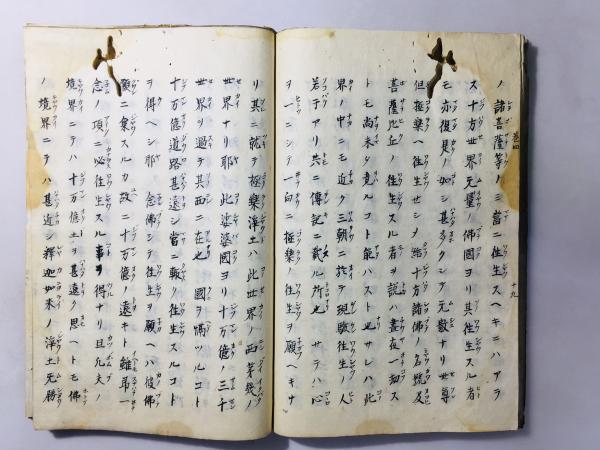 ノ諸菩薩等ノミ當ニ往生スヘキニハアラ
ス十方世界无量ノ佛國ヨリ其往生スル者
モ亦復是ノ如シ甚多クシテ元數ナリ世尊
但極樂ヘ往生セシメ給十方諸佛ノ名號及
菩薩比丘ノ往生スル者ヲ説ハ晝夜一劫ス
トモ尚未タ竟ルコト能ハスト也サレハ此
界ノ中ニモ近ク三朝ニ於テ現験往生ノ人
若干アリ共ニ傳記ニ載ル所也 サテハ心
ヲ一ニシテ一向ニ極樂ノ往生ヲ願ヘキナ
リ其ニ就テ極樂浄土ハ此世界ノ西第幾ノ
世界ナリ耶 此娑婆國ヨリ十万億ノ三千
世界ヲ過テ其西ニ在也 國ヲ隔ツルコト
十万億道路甚遠シ當ニ輙ク往生スルコト
ヲ得ヘシ耶 念佛シテ往生ヲ願ヘハ彼佛
願ニ乗スルカ故ニ十万億ノ遠キト雖耳一
念ノ頃ニ必往生スル事ヲ得ナリ且凡夫ノ
境界ニテハ十万億土ヲ甚遠ク思ヘトモ佛
ノ境界ニテハ甚近シ釋迦如来ノ浄土无勝
巻四
十九